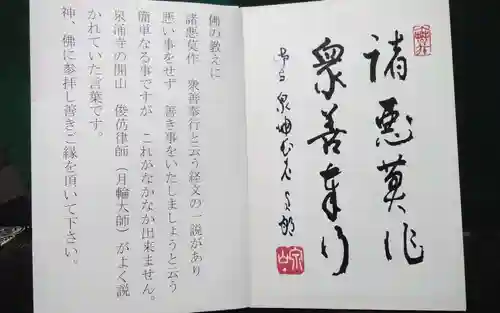 諸悪莫作
衆善奉行
佛の教えに
諸悪莫作　衆善奉行と云う経文の一説があり
悪い事をせず　善き事をいたしましょうと云う
簡単なる事ですが　これがなかなか出来ません。
泉涌寺の開山　俊芿律師（月輪大師）がよく説
かれていた言葉です。
神、佛に参拝し善きご縁を頂いて下さい。